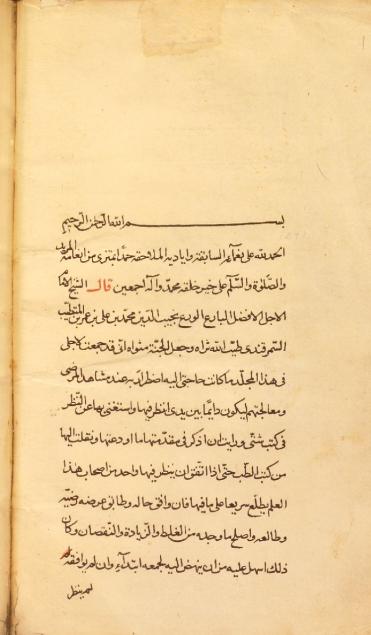 بسم الله الرحمن الرحيم
الحمد لله على نعمائه السابقة واياديه المتلاحقة حمدا يمترى من انعامه المزيد
والصلوة والسلم على خير خلقه محمد وآله اجمعين قال الشيخ الامام
الاجل الافضل البارع الورع نجيب الدين محمد بن على بن عمر المتطبب
السمرقندى طيب الله ثراه وجعل الجنة مثواه انى قد جمعت لاجلى
فى هذا المجلد ما كانت حاجتى اليه اضطرارية عند مشاهد المرضى
ومعالجتهم ليكون دايما بين يدى انظر فيها واستغنى بها عن النظر
فى كتب شتى ورايت ان اذكر فى مقدمتها ما اودعتها ونقلت اليها
من كتب الطب حتى اذا اتفق ان ينظر فيها واحد من اصحاب هذا
العلم يطلع سريعا على ما فيها فان وافق حاله وطابق عرضه
وطالعه واصلح ما وجد من الغلط والزيادة والنقصان وكان
ذلك اسهل عليه من ان ينهض اليه لجمعه ابتداء وان لم يوافقه
لم ينظر